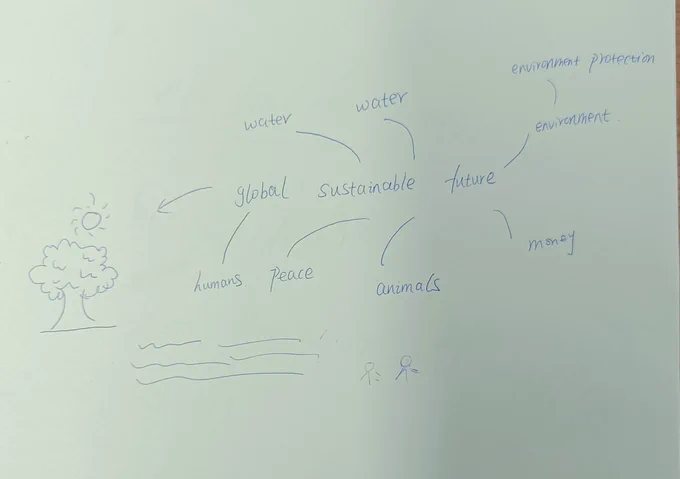 environment protection
water
water
environment.
global sustainable future
money
humans peace
animals